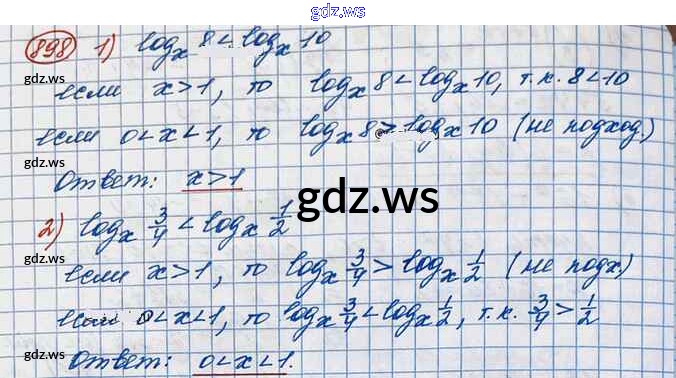 gdz.ws
898 1) log_x 8 < log_x 10
gdz.ws
если x>1, то log_x 8 < log_x 10, т.к. 8<10
если 0<x<1, то log_x 8 > log_x 10 (не подход.)
gdz.ws
Ответ: x>1
gdz.ws
2) log_x 3/4 < log_x 1/2
gdz.ws
если x>1, то log_x 3/4 > log_x 1/2 (не подх)
если 0<x<1, то log_x 3/4 < log_x 1/2, т.к. 3/4 > 1/2
gdz.ws
Ответ: 0<x<1.